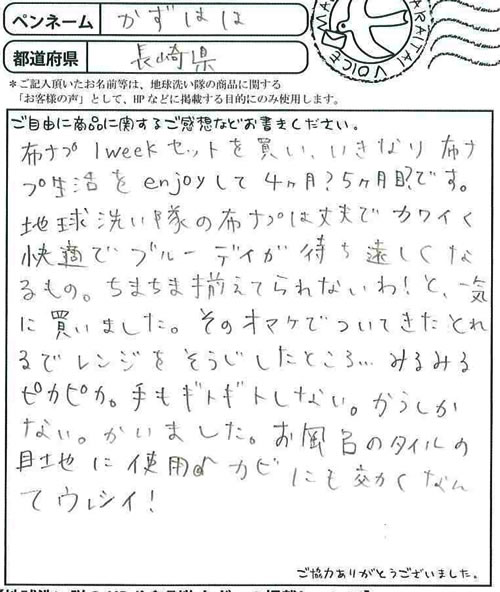 ペンネーム かずはは
都道府県 長崎県
VOICE
＊ご記入頂いたお名前等は、地球洗い隊の商品に関する
「お客様の声」として、HPなどに掲載する目的にのみ使用します。
ご自由に商品に関するご感想などお書きください。
布ナプ1weekセットを買い、いきなり布ナ
プ生活をenjoyして4ヶ月?5ヶ月目?です。
地球洗い隊の布ナプは丈夫でカワイく
快適でブルーデイが待ち遠しくな
るもの。ちまちま揃えてられないわ!と、一気
に買いました。そのオマケでついてきたとれ
るでレンジをそうじしたところ…みるみる
ピカピカ。手もギトギトしない。かうしか
ない。かいました。お風呂のタイルの
目地に使用♪カビにも効くなん
てウレシイ!
ご協力ありがとうございました。